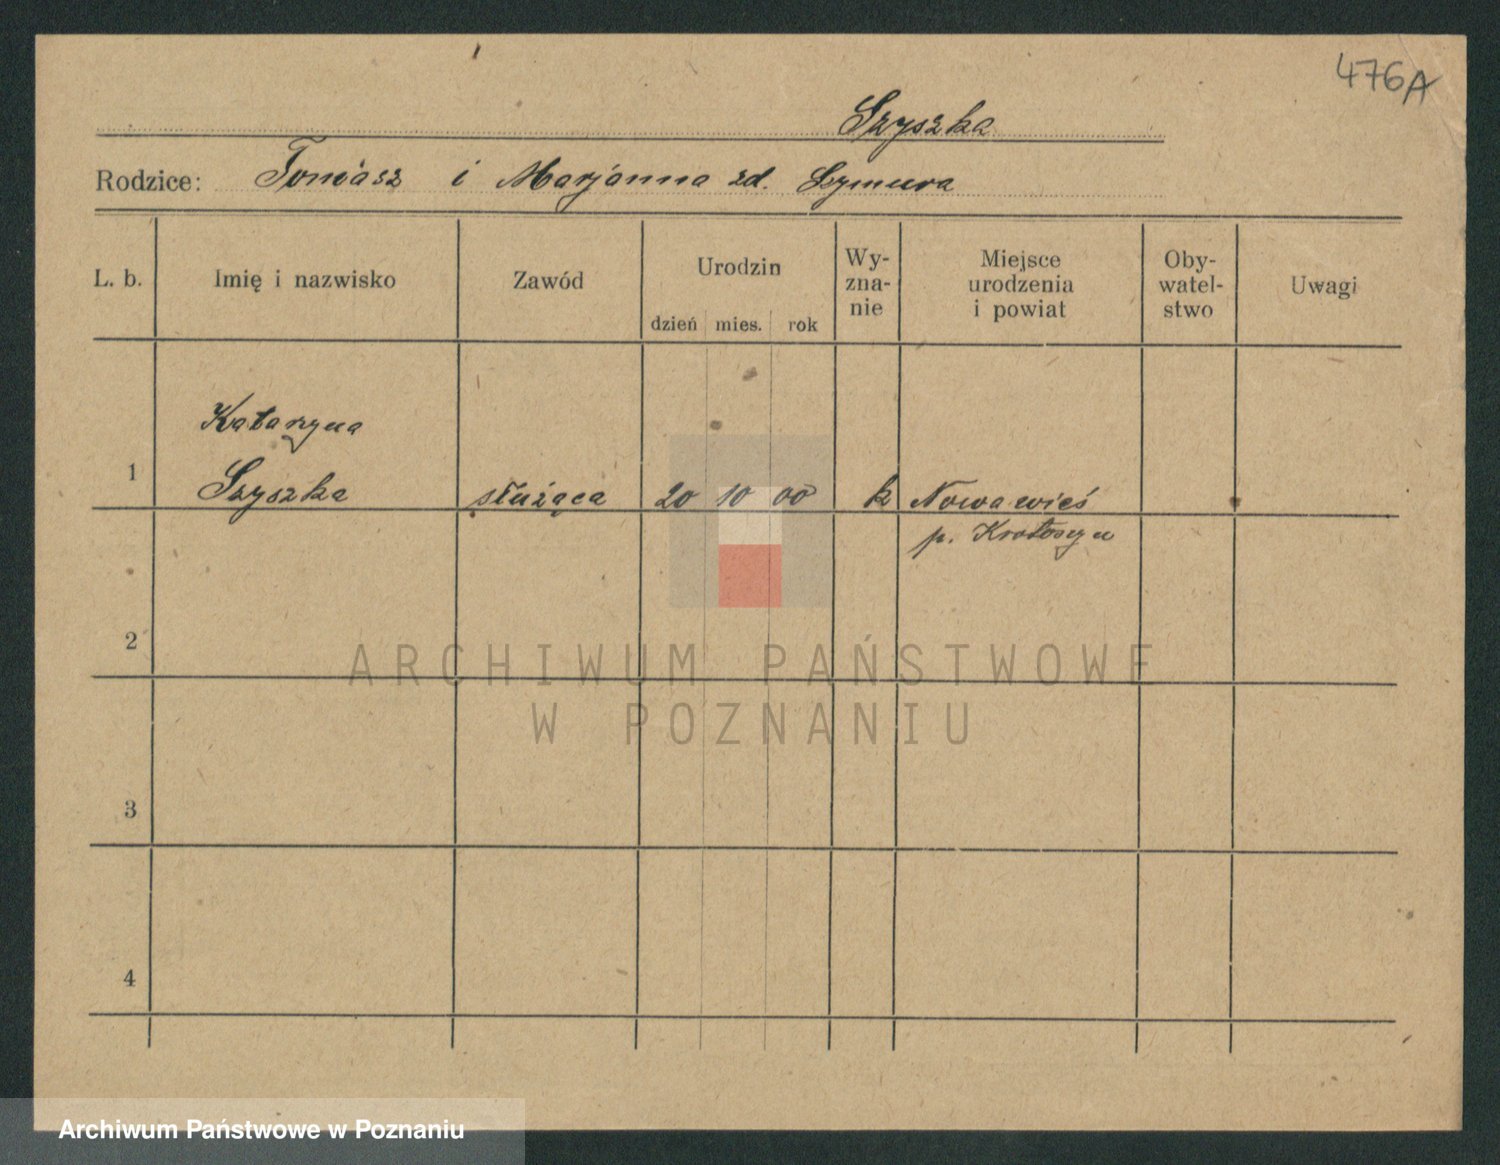 476A
Szyszka
Rodzice: Tomasz i Marjanna zd. Szymura
L. b. Imię i nazwisko Zawód Urodzin Wy-zna-nie Miejsce urodzenia i powiat Oby-watel-stwo Uwagi
dzień mies. rok
Katarzyna
1 Szyszka służąca 20 10 00 k Nowawieś
p. Krotoszyn
2
ARCHIWUM PAŃSTWOWE
W POZNANIU
3
4
Archiwum Państwowe w Poznaniu